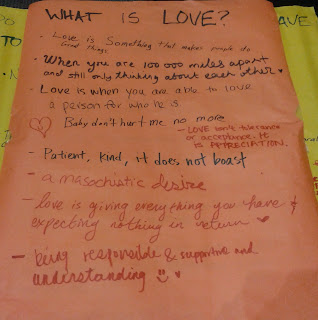 WHAT IS LOVE?
- Love is Something that makes people do
Good things.
• When you are 100 000 miles apart
and still only thinking about each other ♥
• Love is when you are able to love
a person for who he is
Baby don't hurt me no more
- LOVE isn't tolerance
or acceptance. It
is APPRECIATION.
- Patient, kind, it does not boast
- a masochistic desire
- love is giving everything you have &
expecting nothing in return ♥
- being responsible & supportive and
understanding ☺ ♥
AVE
TO